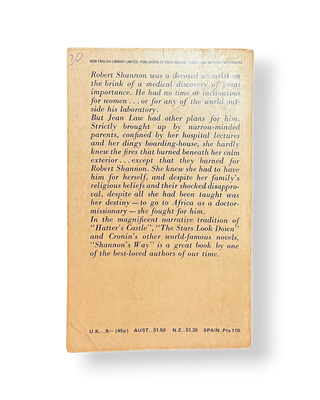 30
NEW ENGLISH LIBRARY LIMITED: PUBLISHERS OF FOUR SQUARE, SIGNET AND MENTOR PAPERBACKS
Robert Shannon was a devoted scientist on
the brink of a medical discovery of great
importance. He had no time or inclination
for women . . . or for any of the world out-
side his laboratory.
But Jean Law had other plans for him.
Strictly brought up by narrow-minded
parents, confined by her hospital lectures
and her dingy boarding-house, she hardly
knew the fires that burned beneath her calm
exterior . . . except that they burned for
Robert Shannon. She knew she had to have
him for herself, and despite her family's
religious beliefs and their shocked disappro-
val, despite all she had been taught was
her destiny—to go to Africa as a doctor-
missionary—she fought for him.
In the magnificent narrative tradition of
"Hatter's Castle", "The Stars Look Down"
and Cronin's other world-famous novels,
"Shannon's Way" is a great book by one
of the best-loved authors of our time.
U.K....9/- (45p) AUST...$1.50 N.Z...$1.35 SPAIN. Pts 110